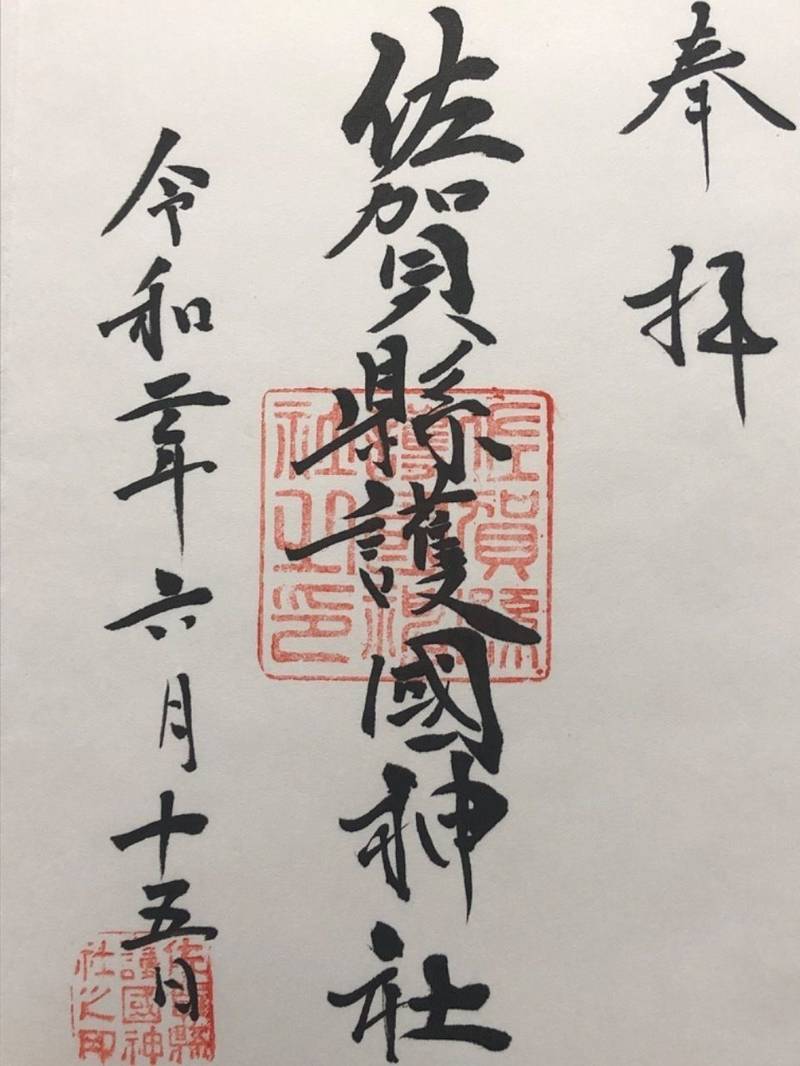 奉拝
佐賀縣護國神社
令和二年六月十五日
佐賀縣
護國神
社之印
佐賀縣
護國神
社之印